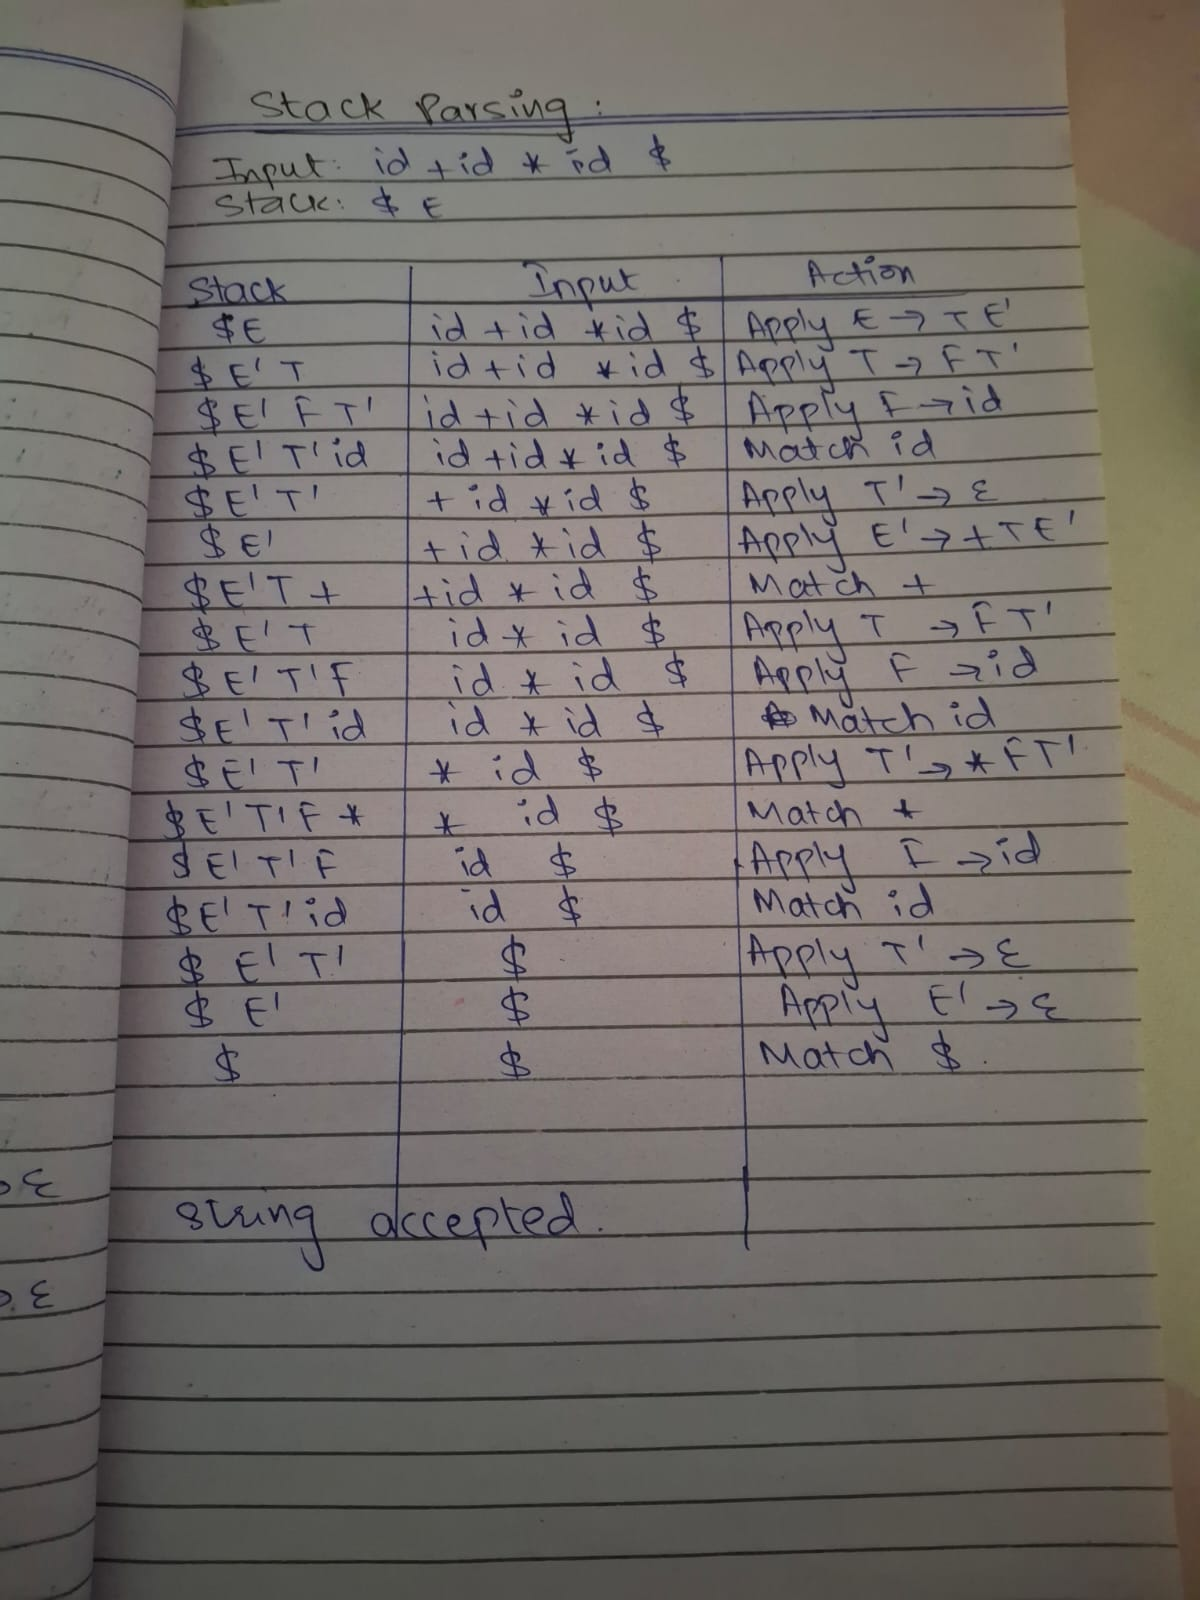 Stack Parsing :
Input: id + id * id $
Stack: $ E
Stack Input Action
$E id + id * id $ Apply E → T E'
$ E' T id + id * id $ Apply T → F T'
$ E' F T' id + id * id $ Apply F → id
$ E' T' id id + id * id $ Match id
$ E' T' + id * id $ Apply T' → ε
$ E' + id * id $ Apply E' → + T E'
$ E' T + + id * id $ Match +
$ E' T id * id $ Apply T → F T'
$ E' T' F id * id $ Apply F → id
$ E' T' id id * id $ Match id
$ E' T' * id $ Apply T' → * F T'
$ E' T' F * * id $ Match *
$ E' T' F id $ Apply F → id
$ E' T' id id $ Match id
$ E' T' $ Apply T' → ε
$ E' $ Apply E' → ε
$ $ Match $.
string accepted.